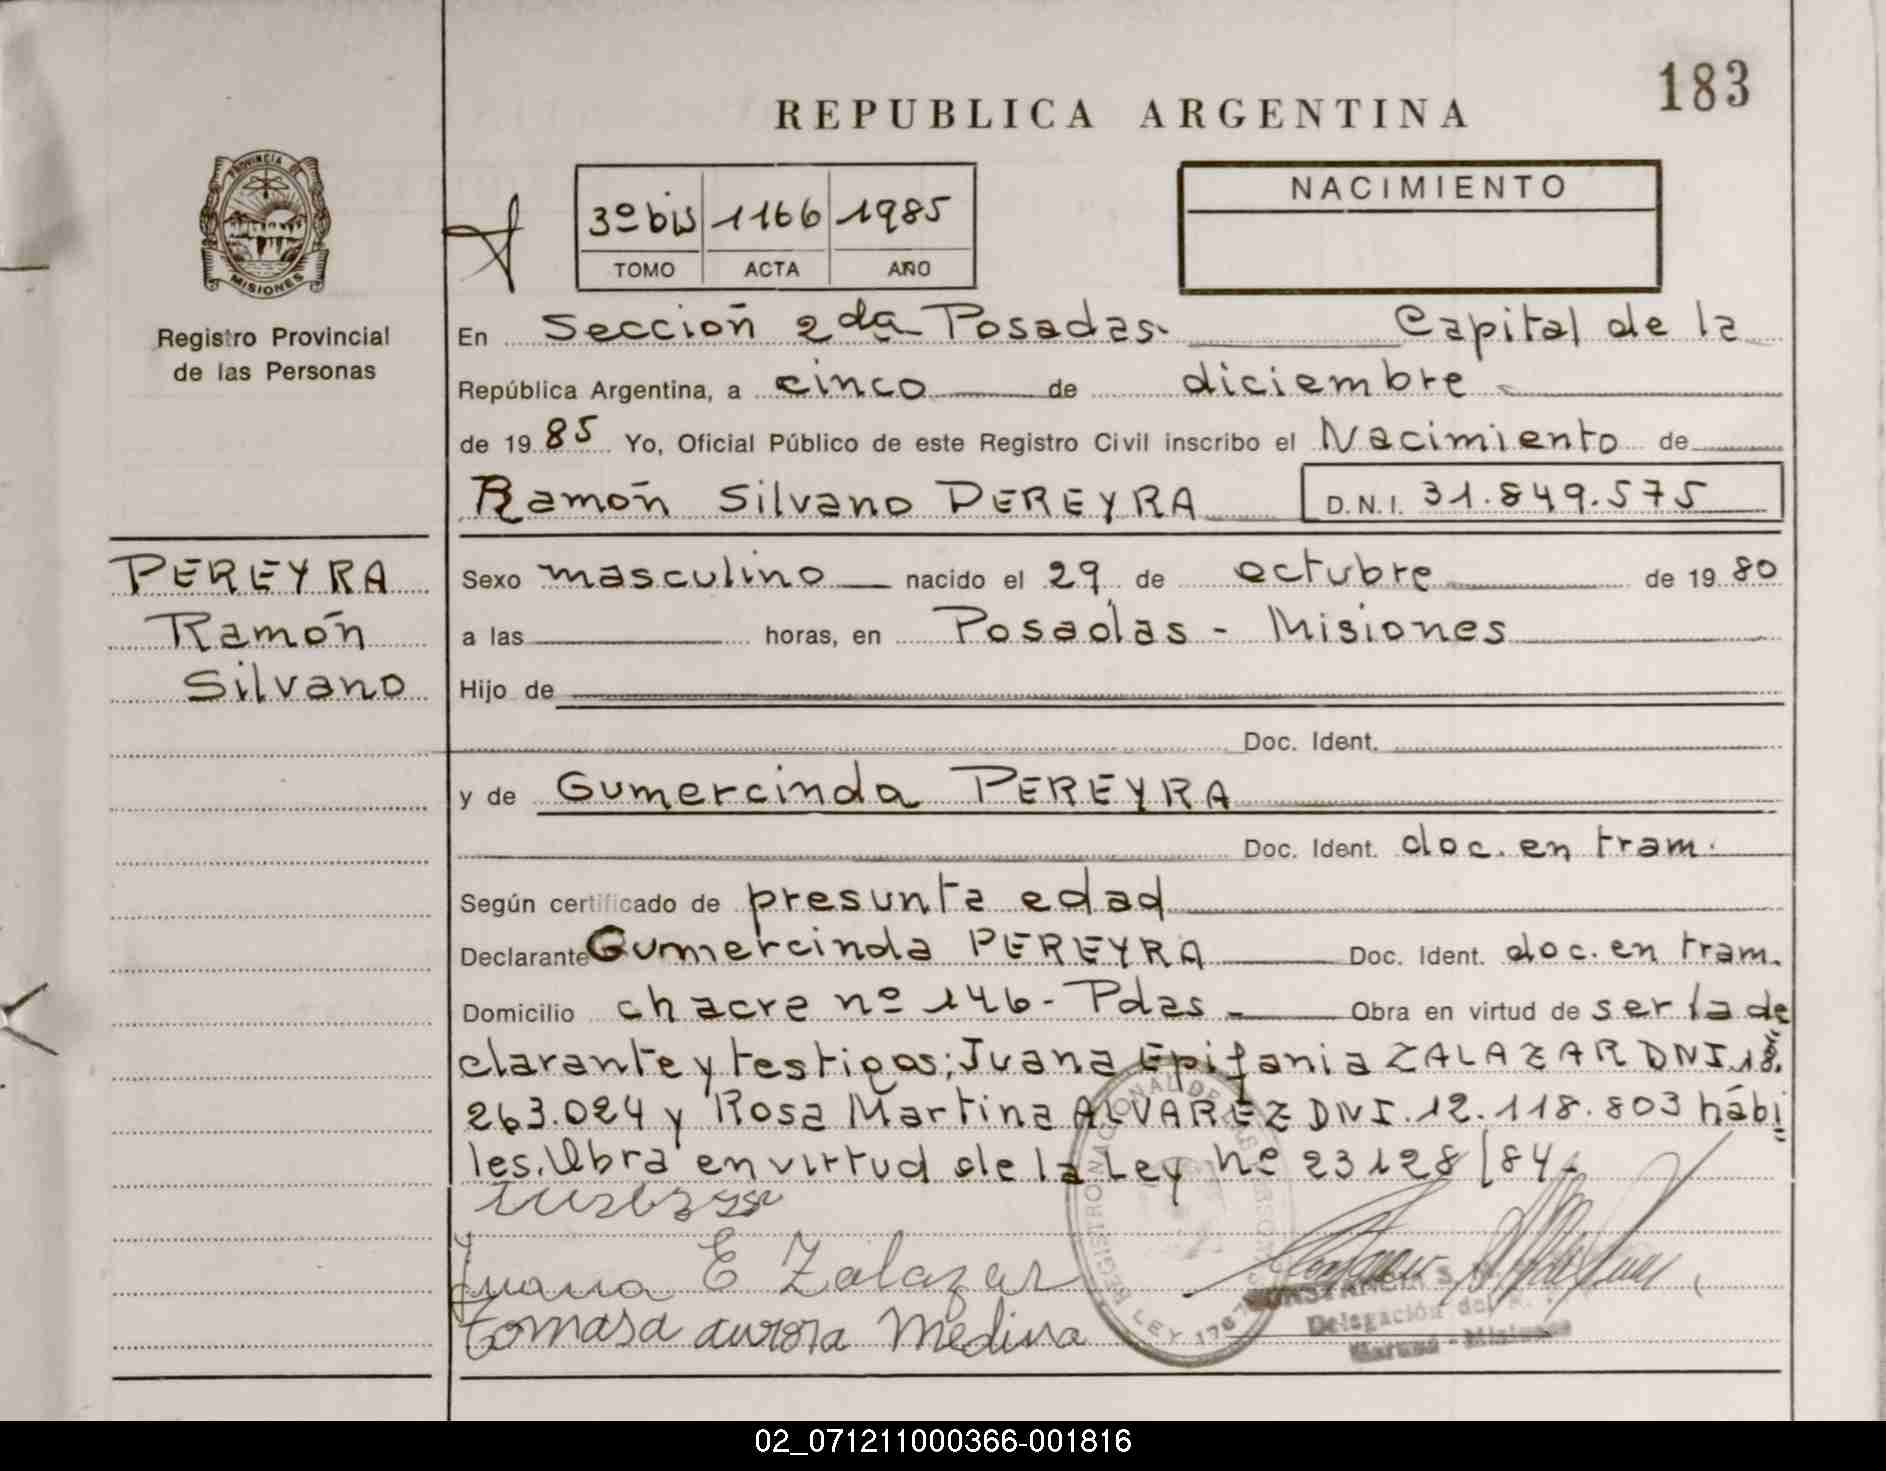 183
REPUBLICA ARGENTINA
PROVINCIA DE MISIONES
Registro Provincial
de las Personas
3º bis 1166 1985
TOMO ACTA AÑO
NACIMIENTO
En Sección 2da Posadas. Capital de la
República Argentina, a cinco de diciembre
de 19 85 Yo, Oficial Público de este Registro Civil inscribo el Nacimiento de
Ramón Silvano PEREYRA D.N.I. 31.849.575
PEREYRA
Ramón
Silvano
Sexo masculino nacido el 29 de octubre de 19 80
a las horas, en Posadas - Misiones
Hijo de
Doc. Ident.
y de Gumercinda PEREYRA
Doc. Ident. doc. en tram.
Según certificado de presunta edad
Declarante Gumercinda PEREYRA Doc. Ident. doc. en tram.
Domicilio chacra nº 146 - Pdas Obra en virtud de ser la de
clarante y testigos; Juana Epifania ZALAZAR DNI 18.
263.024 y Rosa Martina ALVAREZ DNI. 12.118.803 hábi
les. Obra en virtud de la Ley Nº 23128/84.-
Juana E Zalazar
tomasa aurora Medina
REGISTRO NACIONAL DE LAS PERSONAS
LEY 17671
Delegación del
02_071211000366-001816